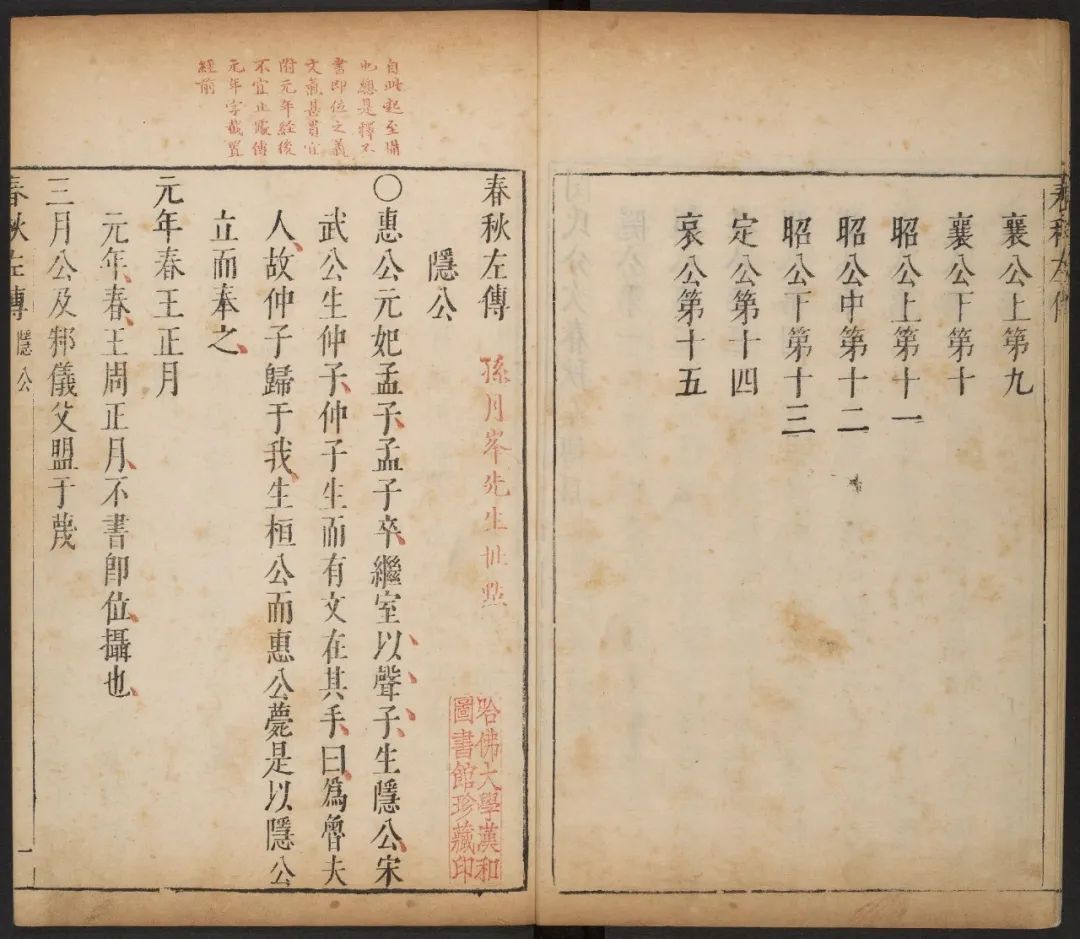 春秋左傳
襄公上第九
襄公下第十
昭公上第十一
昭公中第十二
昭公下第十三
定公第十四
哀公第十五
自此起至攝
也總是釋不
書即位之義
文氣甚貫宜
附元年經後
不宜止據傳
元年字截置
經前
春秋左傳
孫月峯先生批點
哈佛大學漢和
圖書館珍藏印
隱公
〇惠公元妃孟子孟子卒繼室以聲子生隱公宋
武公生仲子仲子生而有文在其手曰爲魯夫
人故仲子歸于我生桓公而惠公薨是以隱公
立而奉之
元年春王正月
元年春王周正月不書卽位攝也
三月公及邾儀父盟于蔑
春秋左傳
隱公
一